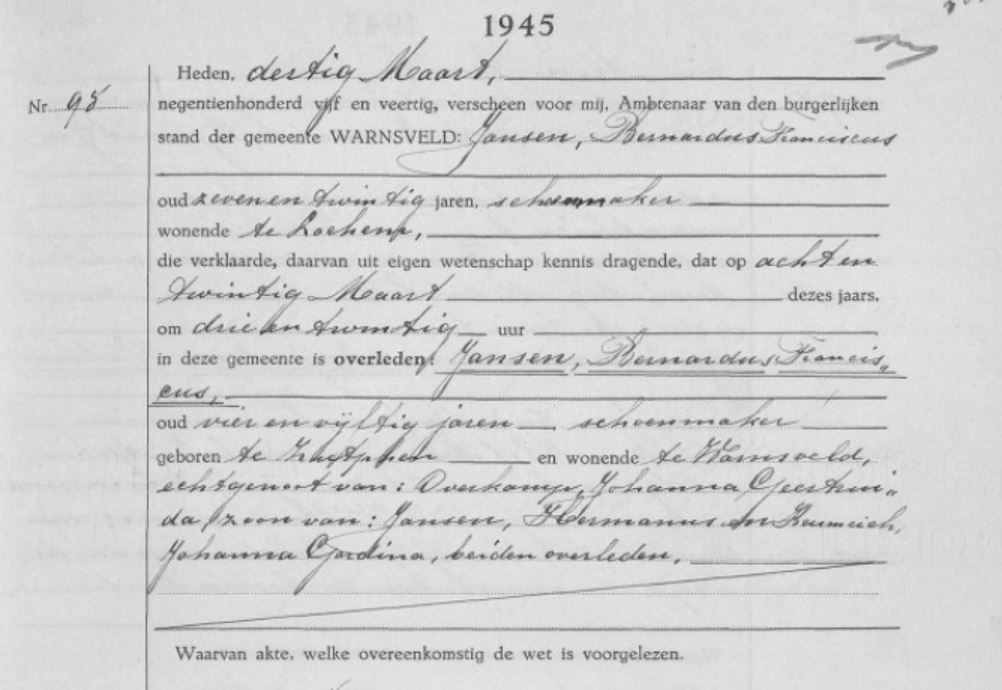 1945
Nr. 95
Heden, dertig Maart,
negentienhonderd vijf en veertig, verscheen voor mij, Ambtenaar van den burgerlijken
stand der gemeente WARNSVELD: Jansen, Bernardus Franciscus
oud zeven en twintig jaren, schoenmaker
wonende te Lochem,
die verklaarde, daarvan uit eigen wetenschap kennis dragende, dat op acht en
twintig Maart dezes jaars,
om drie en twintig uur
in deze gemeente is overleden: Jansen, Bernardus Francis„
cus,
oud vier en vijftig jaren schoenmaker
geboren te Zutphen en wonende te Warnsveld,
echtgenoot van: Overkamp, Johanna Geertrui„
da, zoon van: Jansen, Hermanus en
Johanna Gardina, beiden overleden,
Waarvan akte, welke overeenkomstig de wet is voorgelezen.